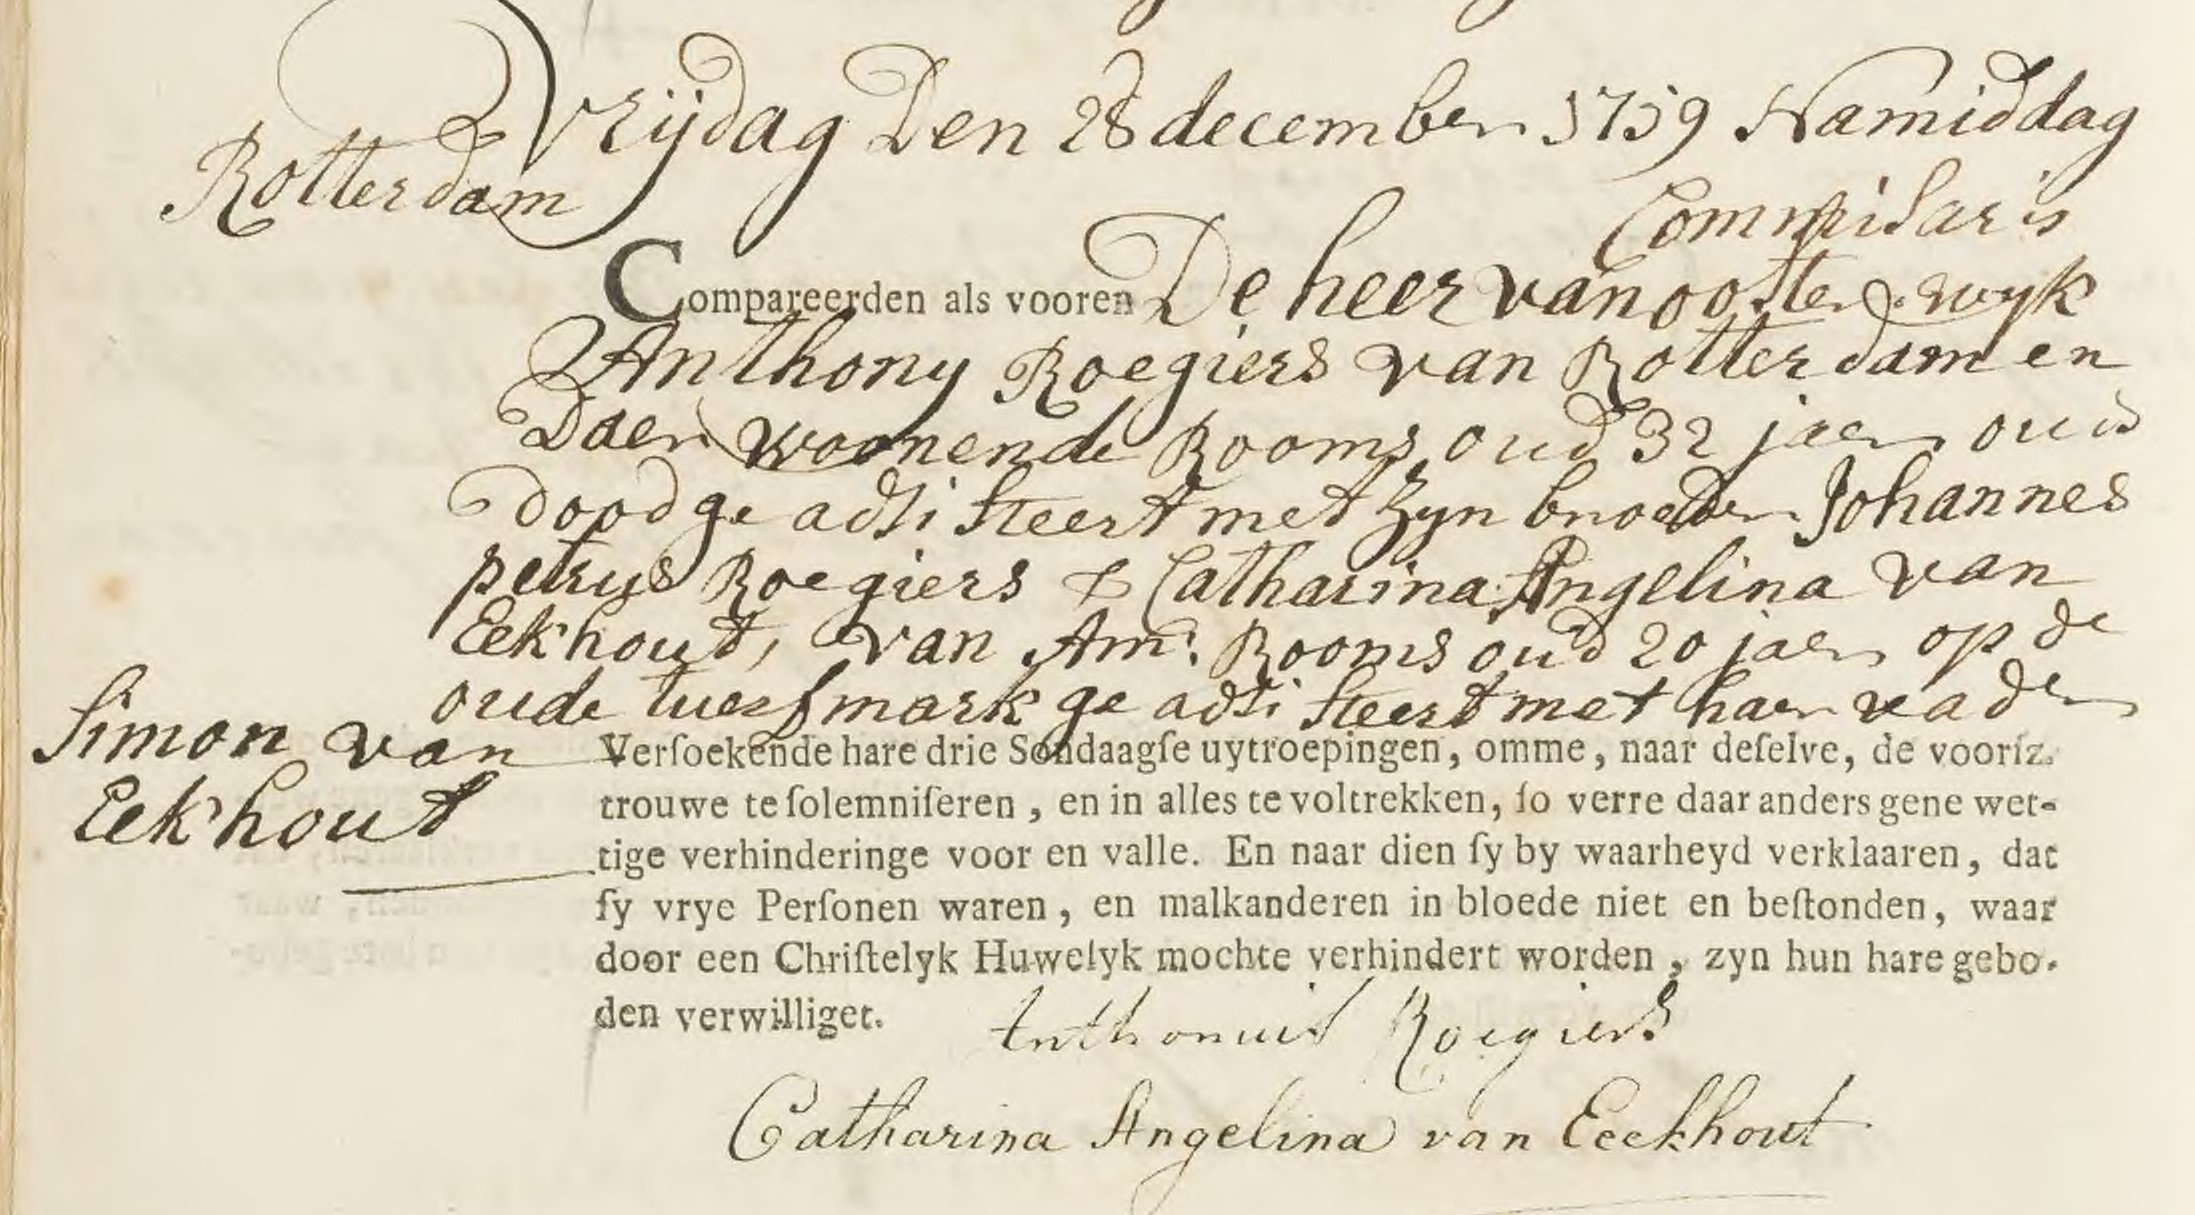 Vrijdag Den 28 december 1759 Namiddag
Rotterdam
Commisaris
Compareerden als vooren De heer van oosterwyk
Anthony Roegiers van Rotterdam en
Daer woonende Rooms oud 32 jaer ouds
dood ge adsisteert met Zyn broeder Johannes
petrus Roegiers & Catharina Angelina van
Eekhout, van Amr. Rooms oud 20 jaer op de
oude turfmark ge adsisteert met haer vader
Simon van
Eekhout
Verſoekende hare drie Sondaagſe uytroepingen, omme, naar deſelve, de voorſz.
trouwe te ſolemniſeren, en in alles te voltrekken, ſo verre daar anders gene wet-
tige verhinderinge voor en valle. En naar dien ſy by waarheyd verklaaren, dat
ſy vrye Perſonen waren, en malkanderen in bloede niet en beſtonden, waar
door een Chriſtelyk Huwelyk mochte verhindert worden, zyn hun hare gebo-
den verwilliget.
Anthonius Roegiers
Catharina Angelina van Eeckhout